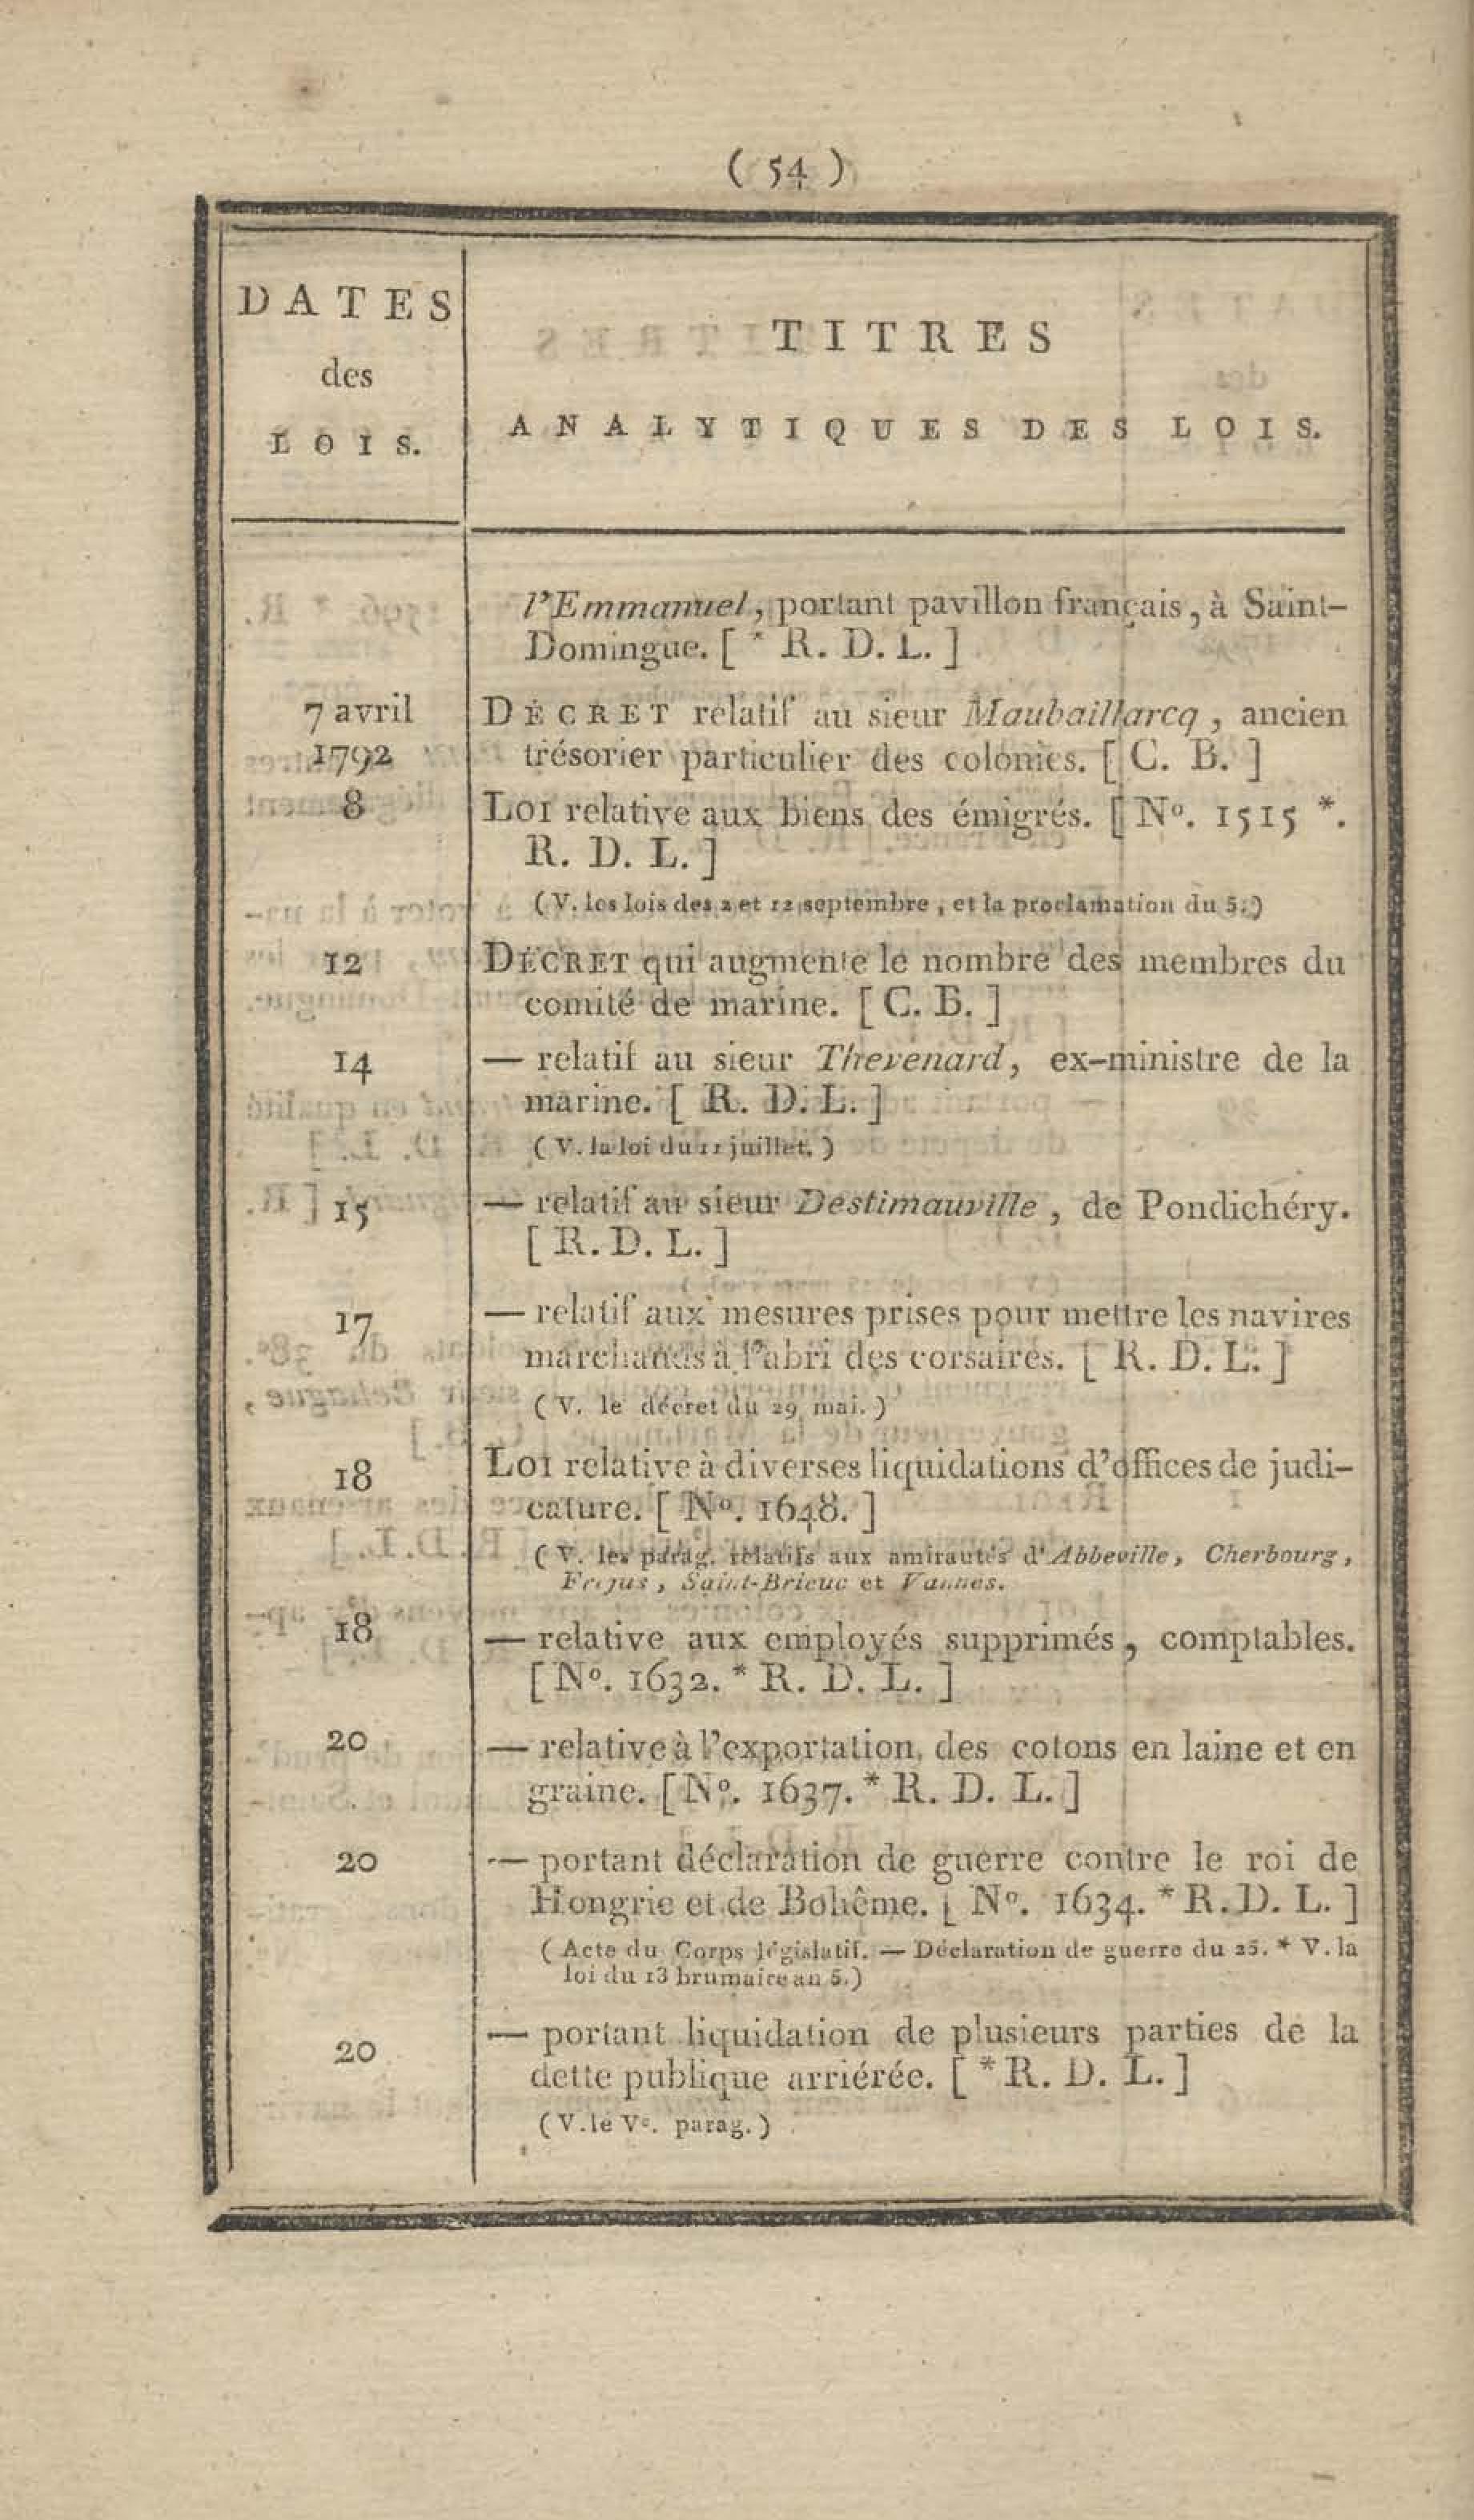 ( 54 )
DATES
des
LOIS.
TITRES
ANALYTIQUES DES LOIS.
l'Emmanuel, portant pavillon français, à Saint-
Domingue. [ * R. D. L. ]
7 avril
1792
DÉCRET relatif au sieur Maubaillarcq, ancien
trésorier particulier des colonies. [ C. B. ]
8
LOI relative aux biens des émigrés. [ Nº. 1515 *.
R. D. L. ]
(V. les lois des 2 et 12 septembre, et la proclamation du 5.)
12
DÉCRET qui augmente le nombre des membres du
comité de marine. [ C. B. ]
14
— relatif au sieur Thevenard, ex-ministre de la
marine. [ R. D. L. ]
( V. la loi du 11 juillet. )
15
— relatif au sieur Destimauville, de Pondichéry.
[ R. D. L. ]
17
— relatif aux mesures prises pour mettre les navires
marchands à l'abri des corsaires. [ R. D. L. ]
( V. le décret du 29 mai. )
18
LOI relative à diverses liquidations d'offices de judi-
cature. [ Nº. 1648. ]
( V. les parag. relatifs aux amirautés d'Abbeville, Cherbourg,
Frejus, Saint-Brieuc et Vannes.
18
— relative aux employés supprimés, comptables.
[ Nº. 1632. * R. D. L. ]
20
— relative à l'exportation des cotons en laine et en
graine. [ Nº. 1637. * R. D. L. ]
20
— portant déclaration de guerre contre le roi de
Hongrie et de Bohême. [ Nº. 1634. * R. D. L. ]
( Acte du Corps législatif. — Déclaration de guerre du 25. * V. la
loi du 13 brumaire an 5.)
20
— portant liquidation de plusieurs parties de la
dette publique arriérée. [ * R. D. L. ]
( V. le Ve. parag. )